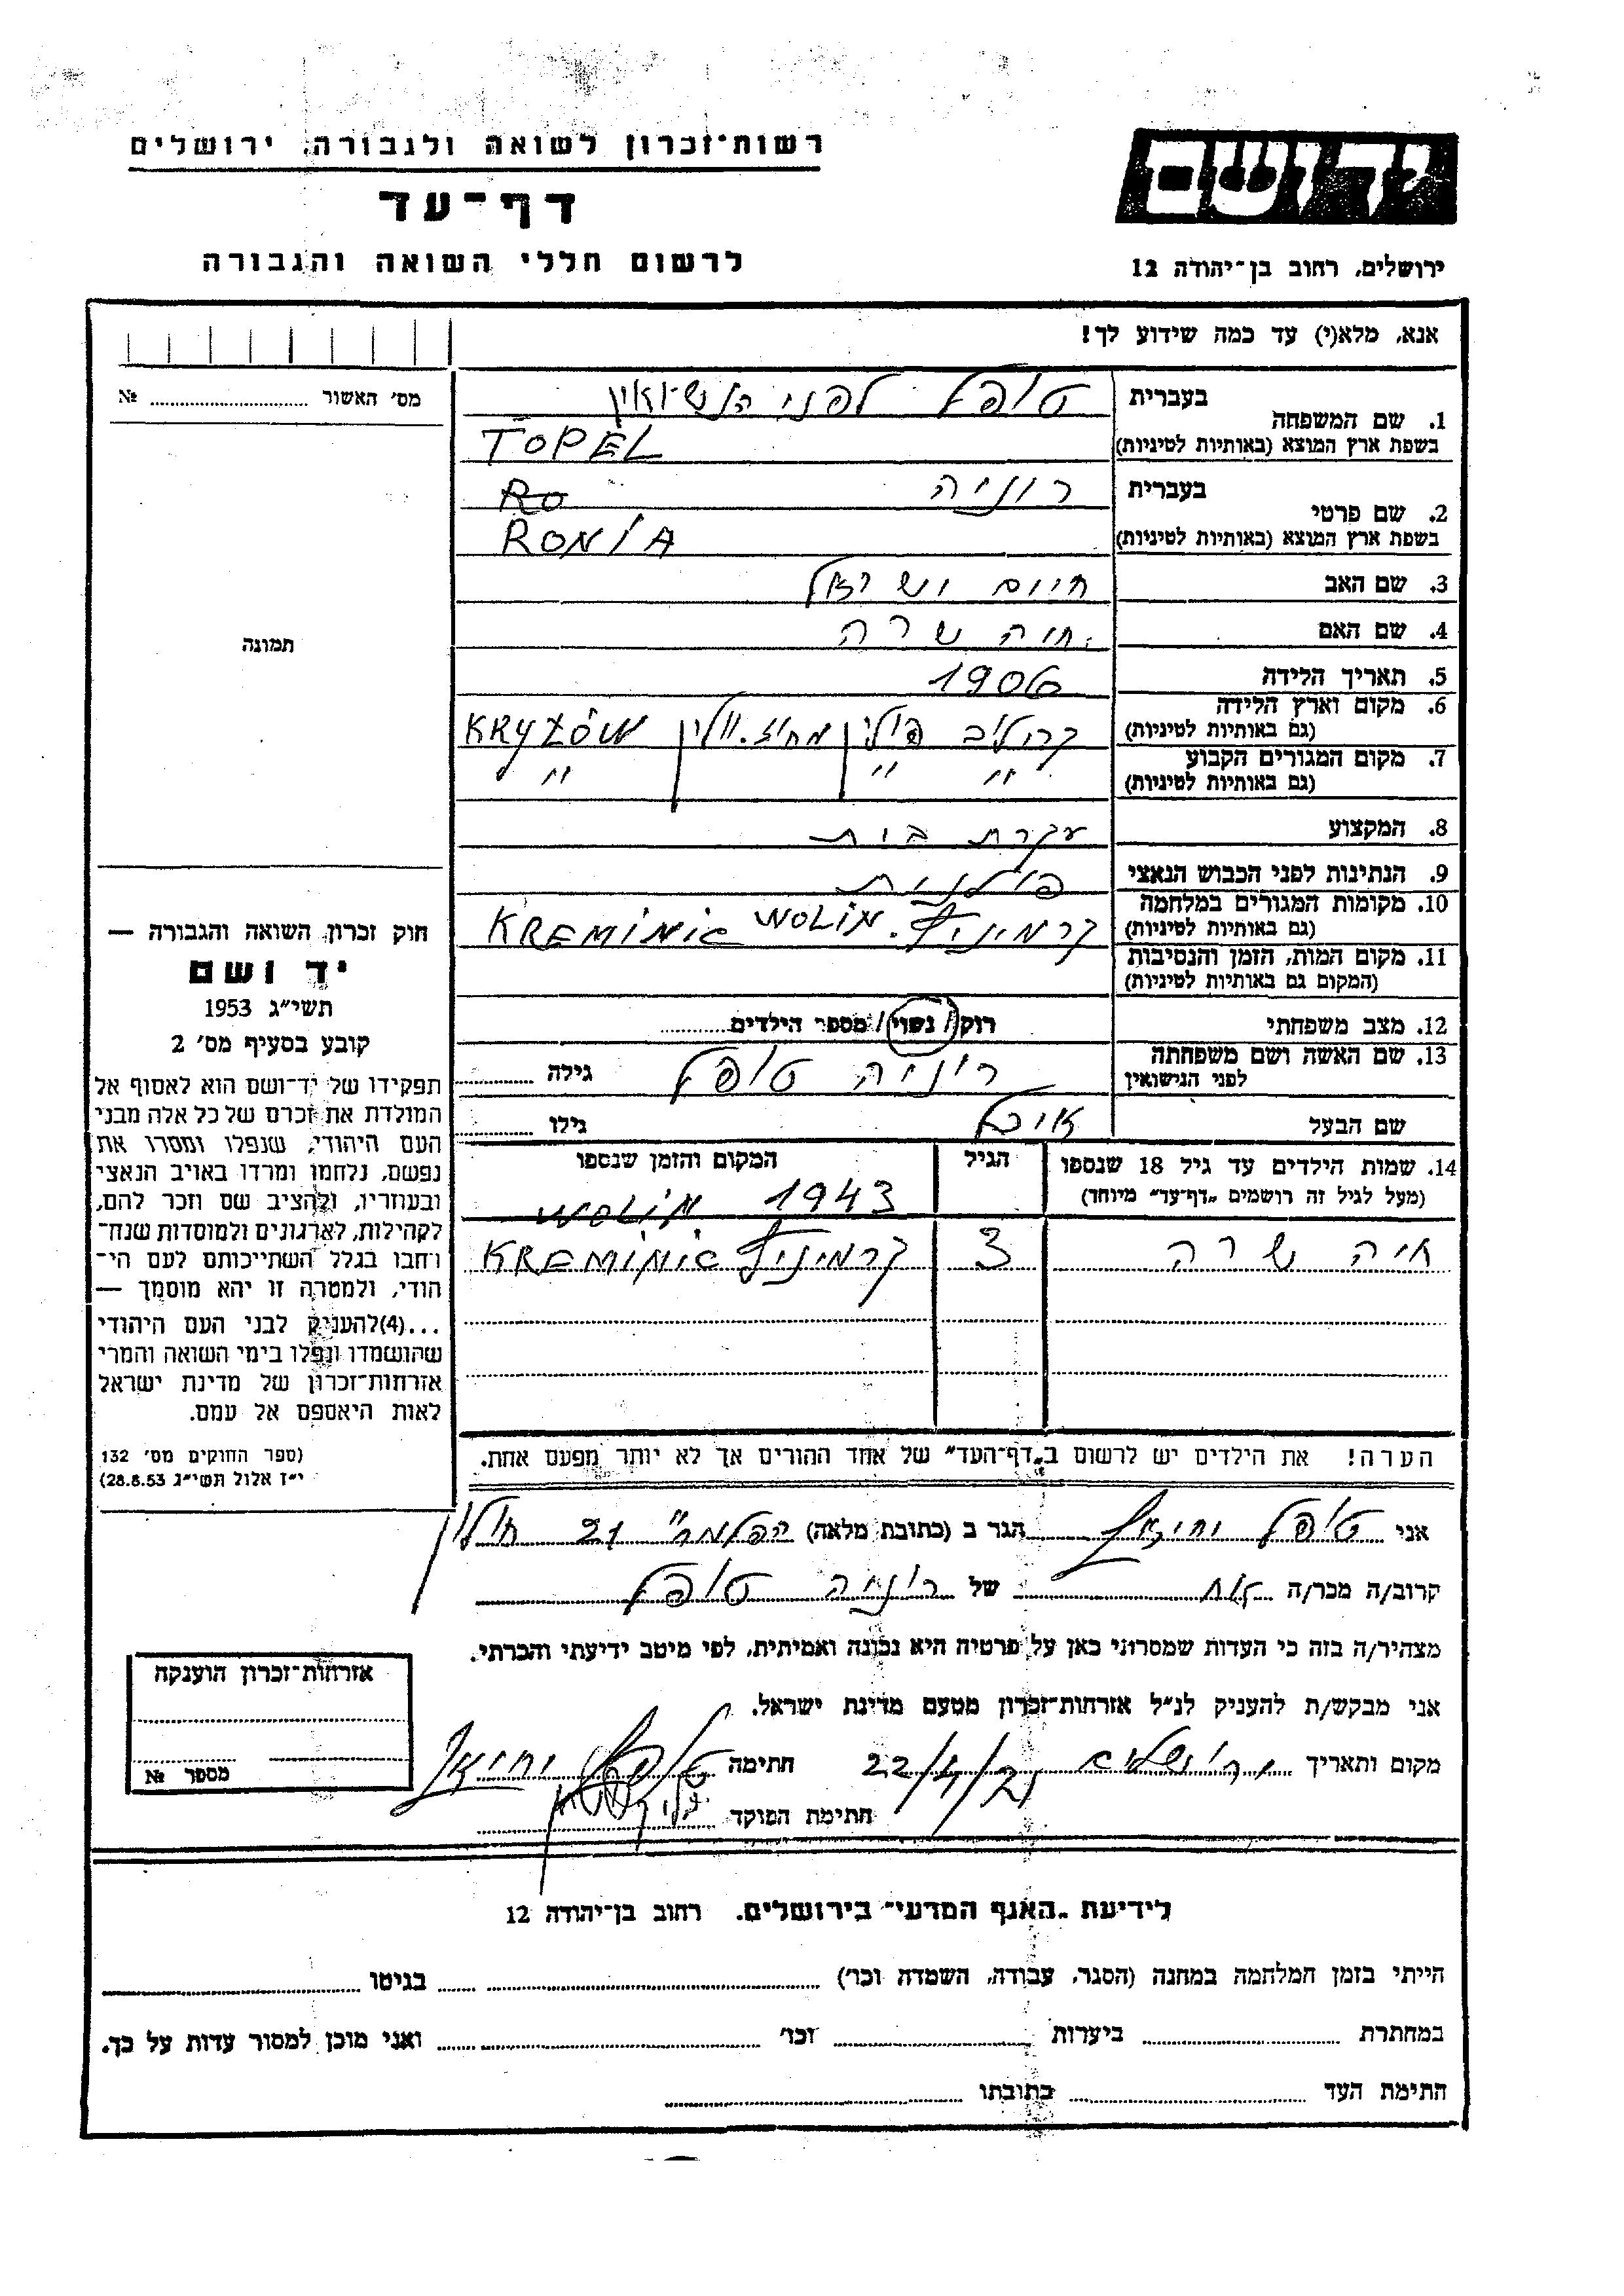 רשות־זכרון לשואה ולגבורה, ירושלים
דף־עד
לרשום חללי השואה והגבורה
יד ושם
ירושלים, רחוב בן־יהודה 12
אנא, מלא(י) עד כמה שידוע לך!
מס' האשור № 
תמונה
1. שם המשפחה בעברית טופל לפני הנשואין
בשפת ארץ המוצא (באותיות לטיניות) TOPEL
2. שם פרטי בעברית רוניה RO
בשפת ארץ המוצא (באותיות לטיניות) RONIA
3. שם האב חיים ישראל
4. שם האם חיה שרה
5. תאריך הלידה 1906
6. מקום וארץ הלידה (גם באותיות לטיניות) פולין מחוז ווולין KRYŻÓW
7. מקום המגורים הקבוע (גם באותיות לטיניות) " " "
8. המקצוע עקרת בית
9. הנתינות לפני הכבוש הנאצי פולנית
10. מקומות המגורים במלחמה (גם באותיות לטיניות) קרמיניץ. WOLIN KREMINIC
11. מקום המות, הזמן והנסיבות (המקום גם באותיות לטיניות)
12. מצב משפחתי רוק/נשוי/מספר הילדים
13. שם האשה ושם משפחתה לפני הנישואין רוניה טופל גילה
שם הבעל גילו
14. שמות הילדים עד גיל 18 שנספו (מעל לגיל זה רושמים „דף־עד" מיוחד) הגיל המקום והזמן שנספו
1943 WOLIN
חיה שרה 3 קרמיניץ KREMINIC
הערה! את הילדים יש לרשום ב„דף־העד" של אחד ההורים אך לא יותר מפעם אחת.
חוק זכרון השואה והגבורה —
יד ושם
תשי"ג 1953
קובע בסעיף מס' 2
תפקידו של יד־ושם הוא לאסוף אל
המולדת את זכרם של כל אלה מבני
העם היהודי, שנפלו ומסרו את
נפשם, נלחמו ומרדו באויב הנאצי
ובעוזריו, ולהציב שם וזכר להם,
לקהילות, לארגונים ולמוסדות שנח־
רחבו בגלל השתייכותם לעם הי־
הודי, ולמטרה זו יהא מוסמך —
...(4)להעניק לבני העם היהודי
שהושמדו ונפלו בימי השואה והמרי
אזרחות־זכרון של מדינת ישראל
לאות היאספם אל עמם.
(ספר החוקים מס' 132
י"ז אלול תשי"ג 28.8.53)
אני טופל יחזקאל הגר ב (כתובת מלאה) הפלמ"ח 21 חולון
קרוב/ה מכר/ה אח של רוניה טופל
מצהיר/ה בזה כי העדות שמסרתי כאן על פרטיה היא נכונה ואמיתית, לפי מיטב ידיעתי והכרתי.
אני מבקש/ת להעניק לנ"ל אזרחות־זכרון מטעם מדינת ישראל.
מקום ותאריך חתימה
חתימת הפוקד
אזרחות־זכרון הוענקה
מספר №
לידיעת „האגף המדעי" בירושלים. רחוב בן־יהודה 12
הייתי בזמן המלחמה במחנה (הסגר, עבודה, השמדה וכו') בגיטו
במחתרת ביערות וכו' ואני מוכן למסור עדות על כך.
חתימת העד כתובתו